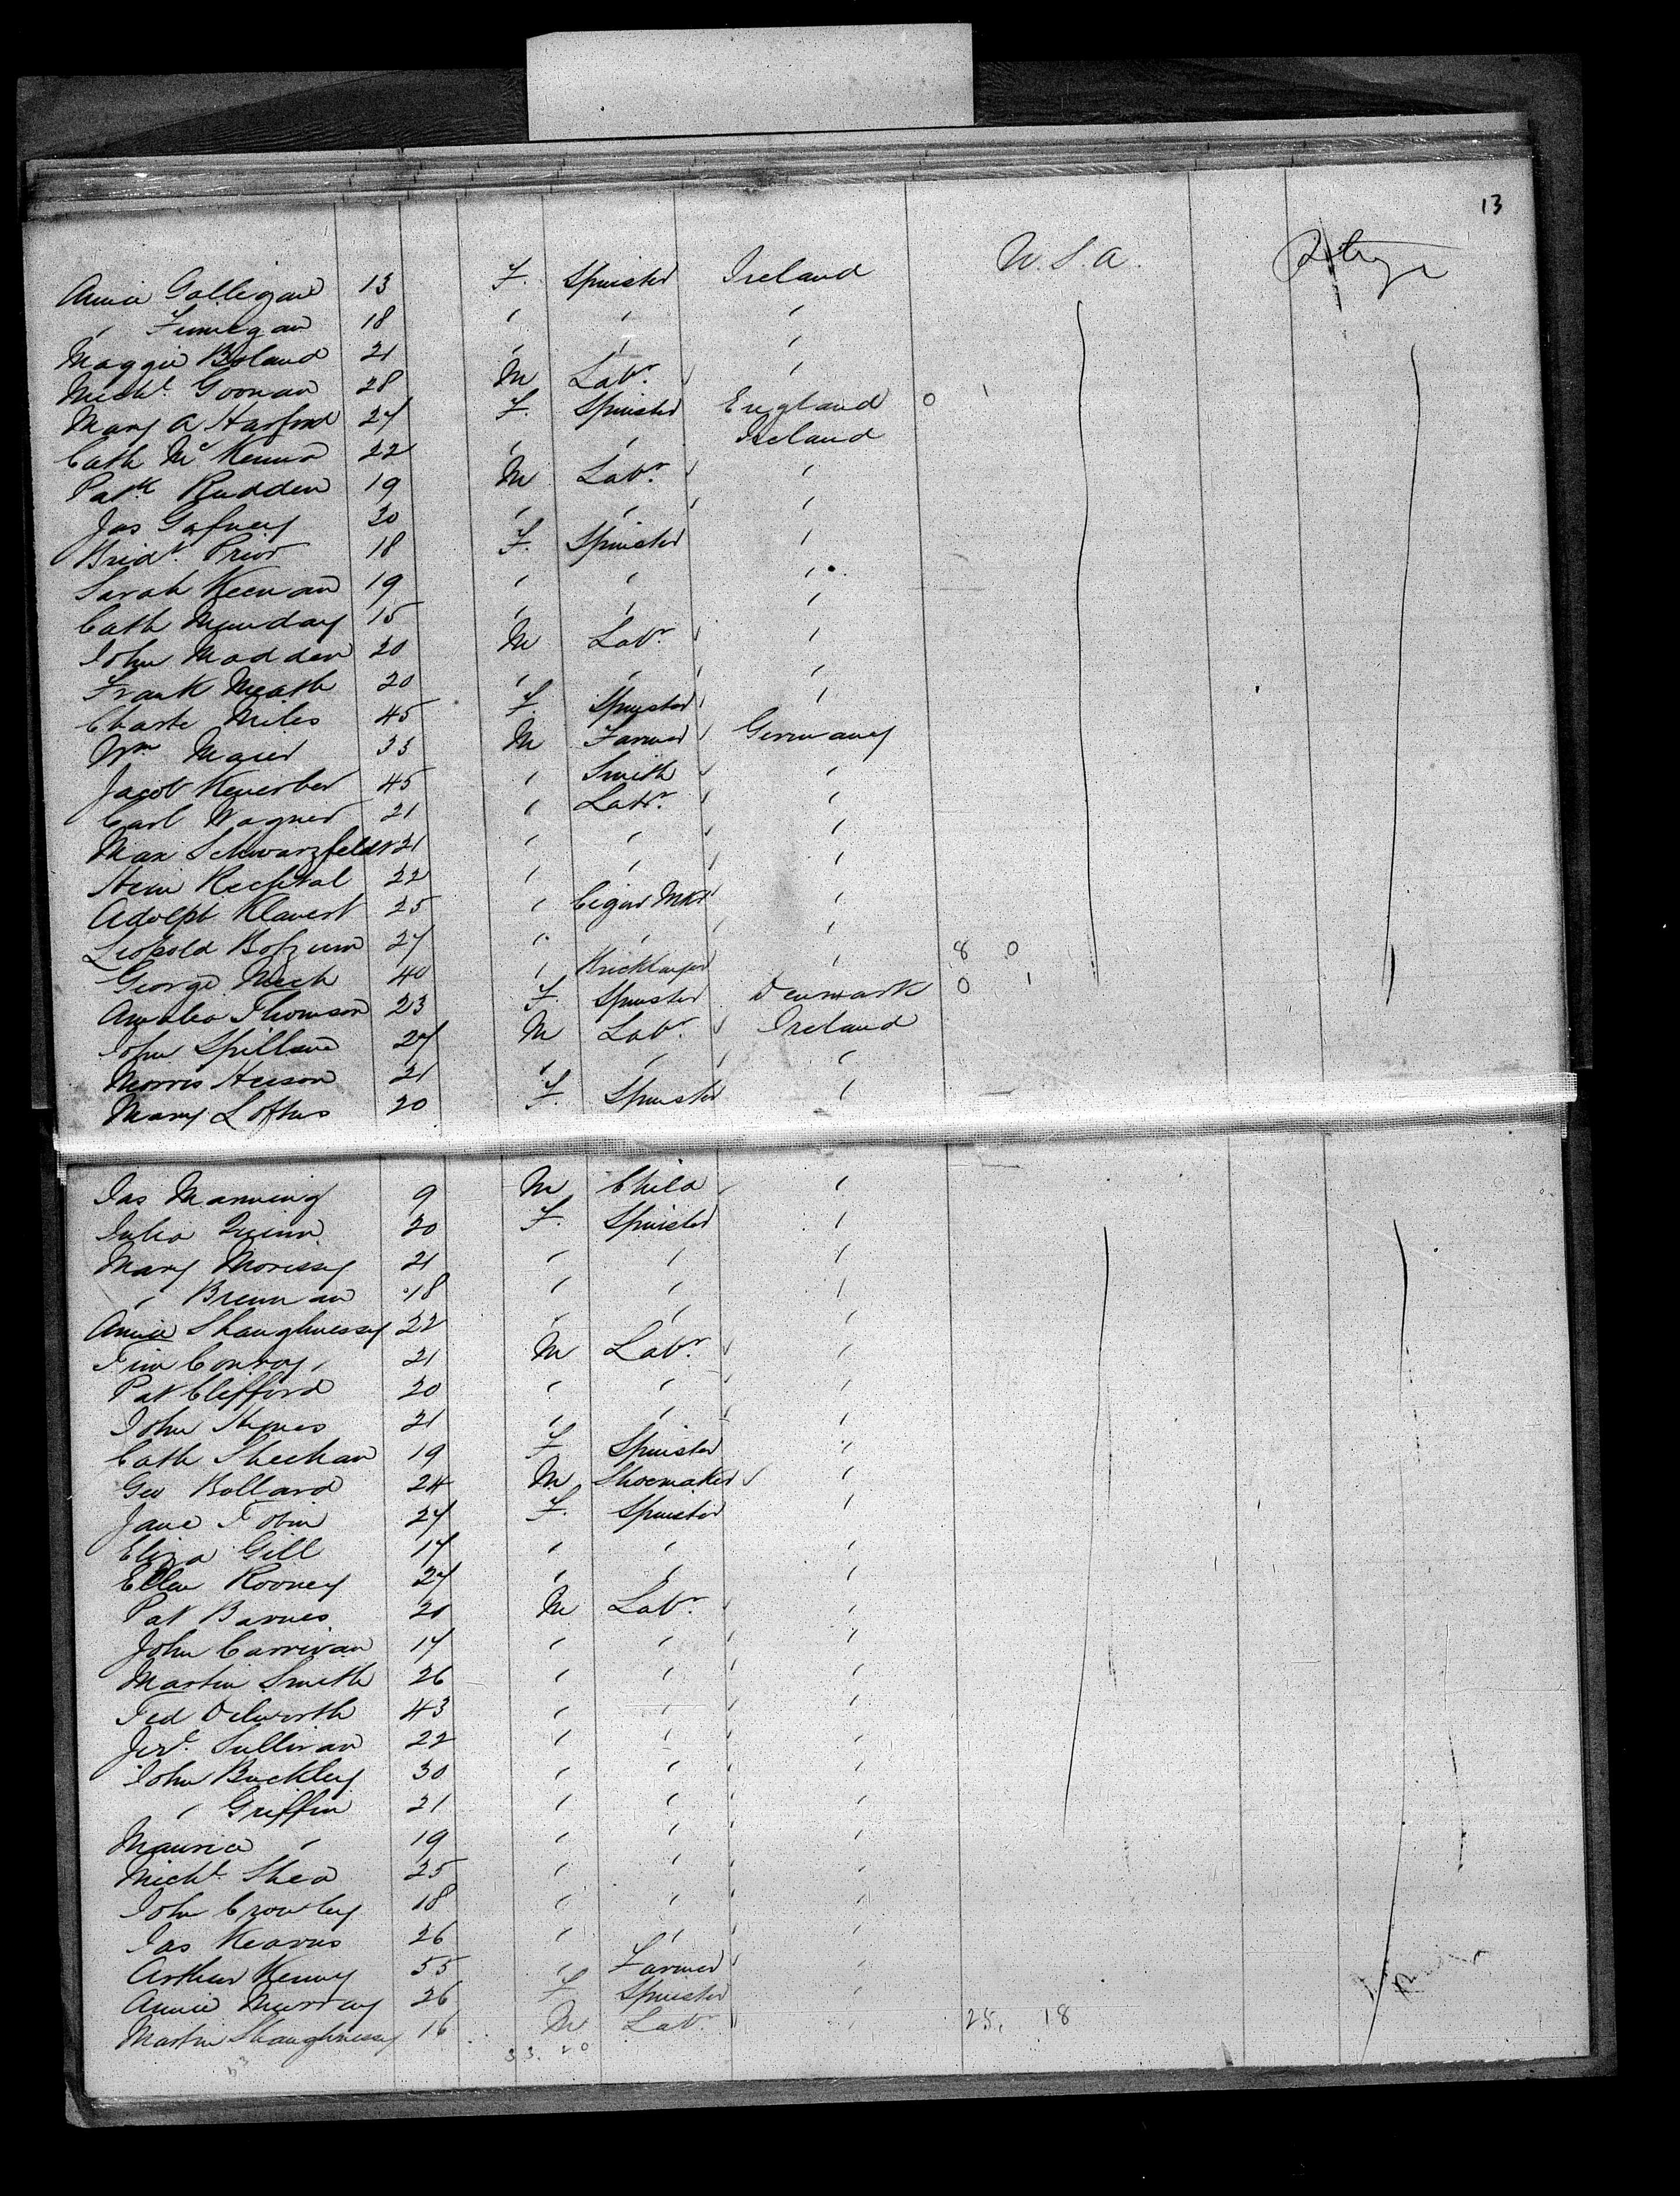 13
Annie Galligan 13 F. Spinster Ireland U.S.A.
" Finnegan 18 " " "
Maggie Boland 21 " " "
Michl. Goonan 28 M Labr. "
Mary A Harford 27 F. Spinster England 0 1
Cath McKenna 22 " " Ireland
Patk Rudden 19 M Labr. "
Jas Gafney 20 " " "
Bridt. Prior 18 F. Spinster "
Sarah Keenan 19 " " "
Cath Munday 15 " " "
John Madden 20 M Labr. "
Frank Meath 20 " " "
Charte Miles 45 F. Spinster "
Wm Maier 33 M Farmer Germany
Jacob 45 " Smith "
Carl Wagner 21 " Labr. "
Max Schwarzfeldt 21 " " "
22 " " "
Adolph Klavert 25 " Cigar Mkr "
Leopold 27 " " "
George Mech 40 " Bricklayer " 8 0
Amalea Thomson 23 F. Spinster Denmark 0 1
John Spillane 27 M Labr. Ireland
Morris Heeson 21 " " "
Mary Loftus 20 F. Spinster "
Jas Manning 9 M Child "
Julia Quinn 20 F. Spinster "
Mary Morissy 21 " " "
" Brennan 18 " " "
Annie Shaughnessy 22 " " "
Tim Conroy 21 M Labr. "
Pat Clifford 20 " " "
John Hynes 21 " " "
Cath Sheehan 19 F Spinster "
Geo Bollard 24 M Shoemaker "
Jane Tobin 27 F. Spinster "
Eliza Gill 17 " " "
Ellen Rooney 27 " " "
Pat Barnes 20 M Labr. "
John Carrivan 17 " " "
Martin Smith 26 " " "
Ted Delworth 43 " " "
Jerh. Sullivan 22 " " "
John Buckley 30 " " "
" Griffin 21 " " "
Maurice " 19 " " "
Michl. Shea 25 " " "
John Crowley 18 " " "
Jas Kearns 26 " " "
Arthur Kenny 55 " Farmer "
Annie Murray 26 F. Spinster "
Martin Shaughnessy 16 M Labr " 25, 18
53 33. 20